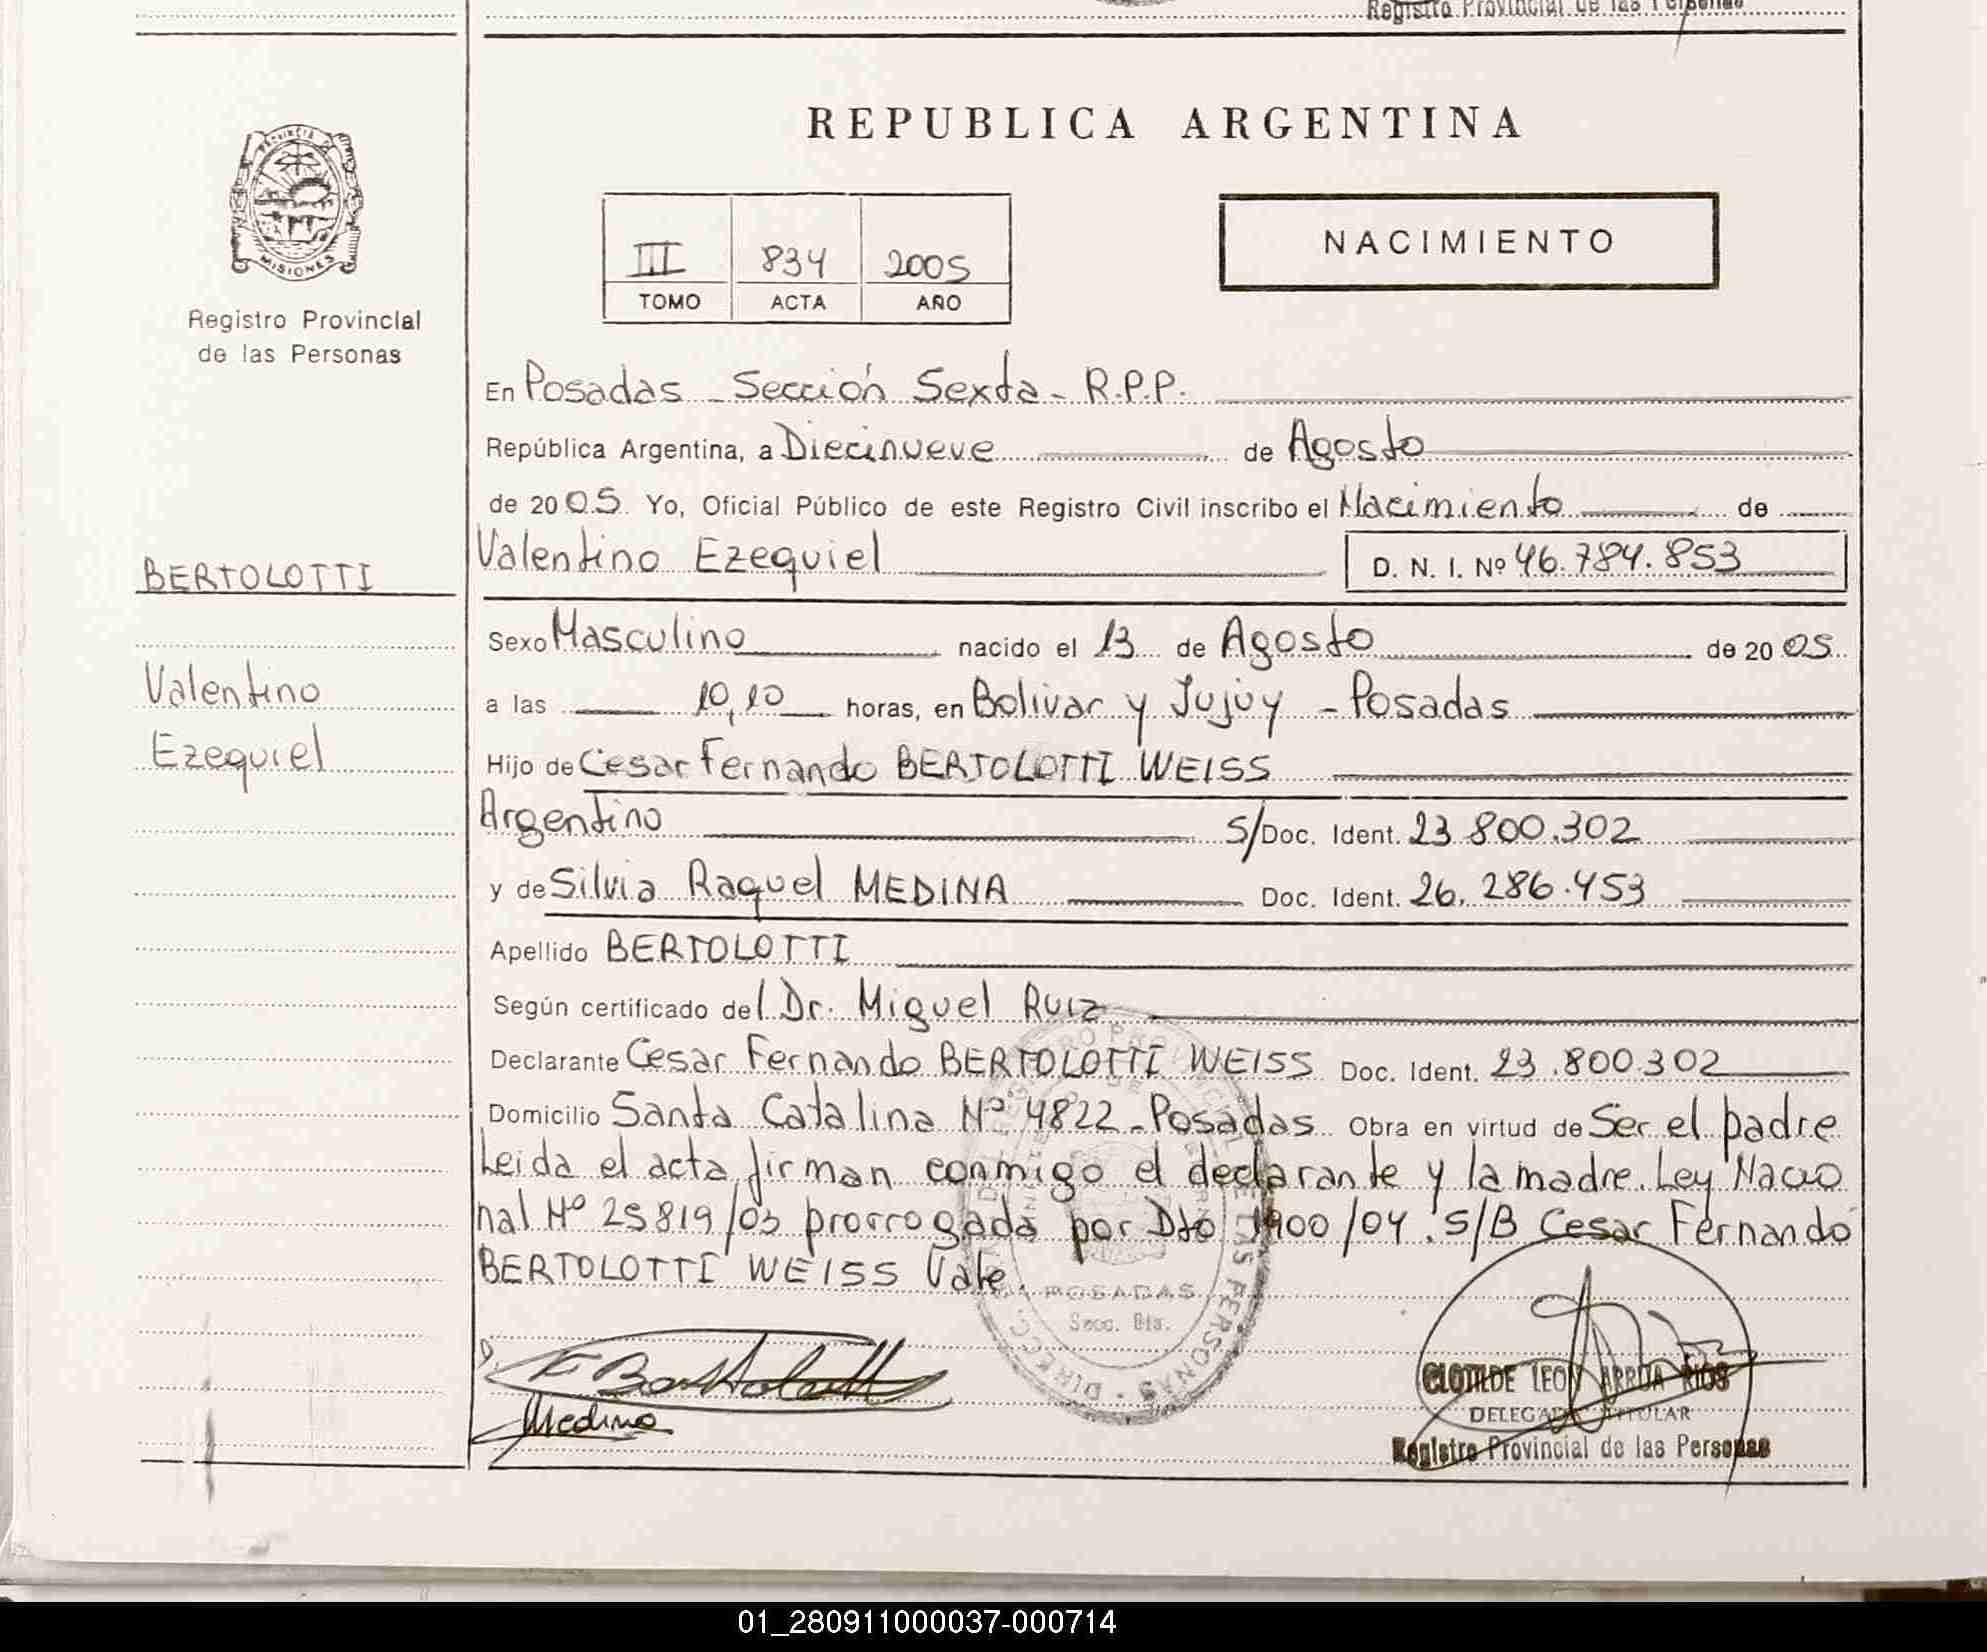 Registro Provincial de las Personas
REPUBLICA ARGENTINA
PROVINCIA DE
MISIONES
Registro Provincial
de las Personas
III 834 2005
TOMO ACTA AÑO
NACIMIENTO
En Posadas - Sección Sexta - R.P.P.
República Argentina, a Diecinueve de Agosto
de 2005. Yo, Oficial Público de este Registro Civil inscribo el Nacimiento de
BERTOLOTTI
Valentino
Ezequiel
Valentino Ezequiel D. N. I. Nº 46.784.853
Sexo Masculino nacido el 13 de Agosto de 2005
a las 10,10 horas, en Bolivar y Jujuy - Posadas
Hijo de Cesar Fernando BERTOLOTTI WEISS
Argentino S/Doc. Ident. 23 800.302
y de Silvia Raquel MEDINA Doc. Ident. 26.286.453
Apellido BERTOLOTTI
Según certificado del Dr. Miguel Ruiz
Declarante Cesar Fernando BERTOLOTTI WEISS Doc. Ident. 23.800.302
Domicilio Santa Catalina Nº 4822 - Posadas Obra en virtud de Ser el padre
Leida el acta, firman conmigo el declarante y la madre. Ley Nacio
nal Nº 25819/03 prorrogada por Dto 1900/04. S/B Cesar Fernando
BERTOLOTTI WEISS Vale.
POSADAS
Secc. 6ta.
F Bertolotti
Medina
CLOTILDE LEON ARRUA RIOS
DELEGADA TITULAR
Registro Provincial de las Personas
01_280911000037-000714